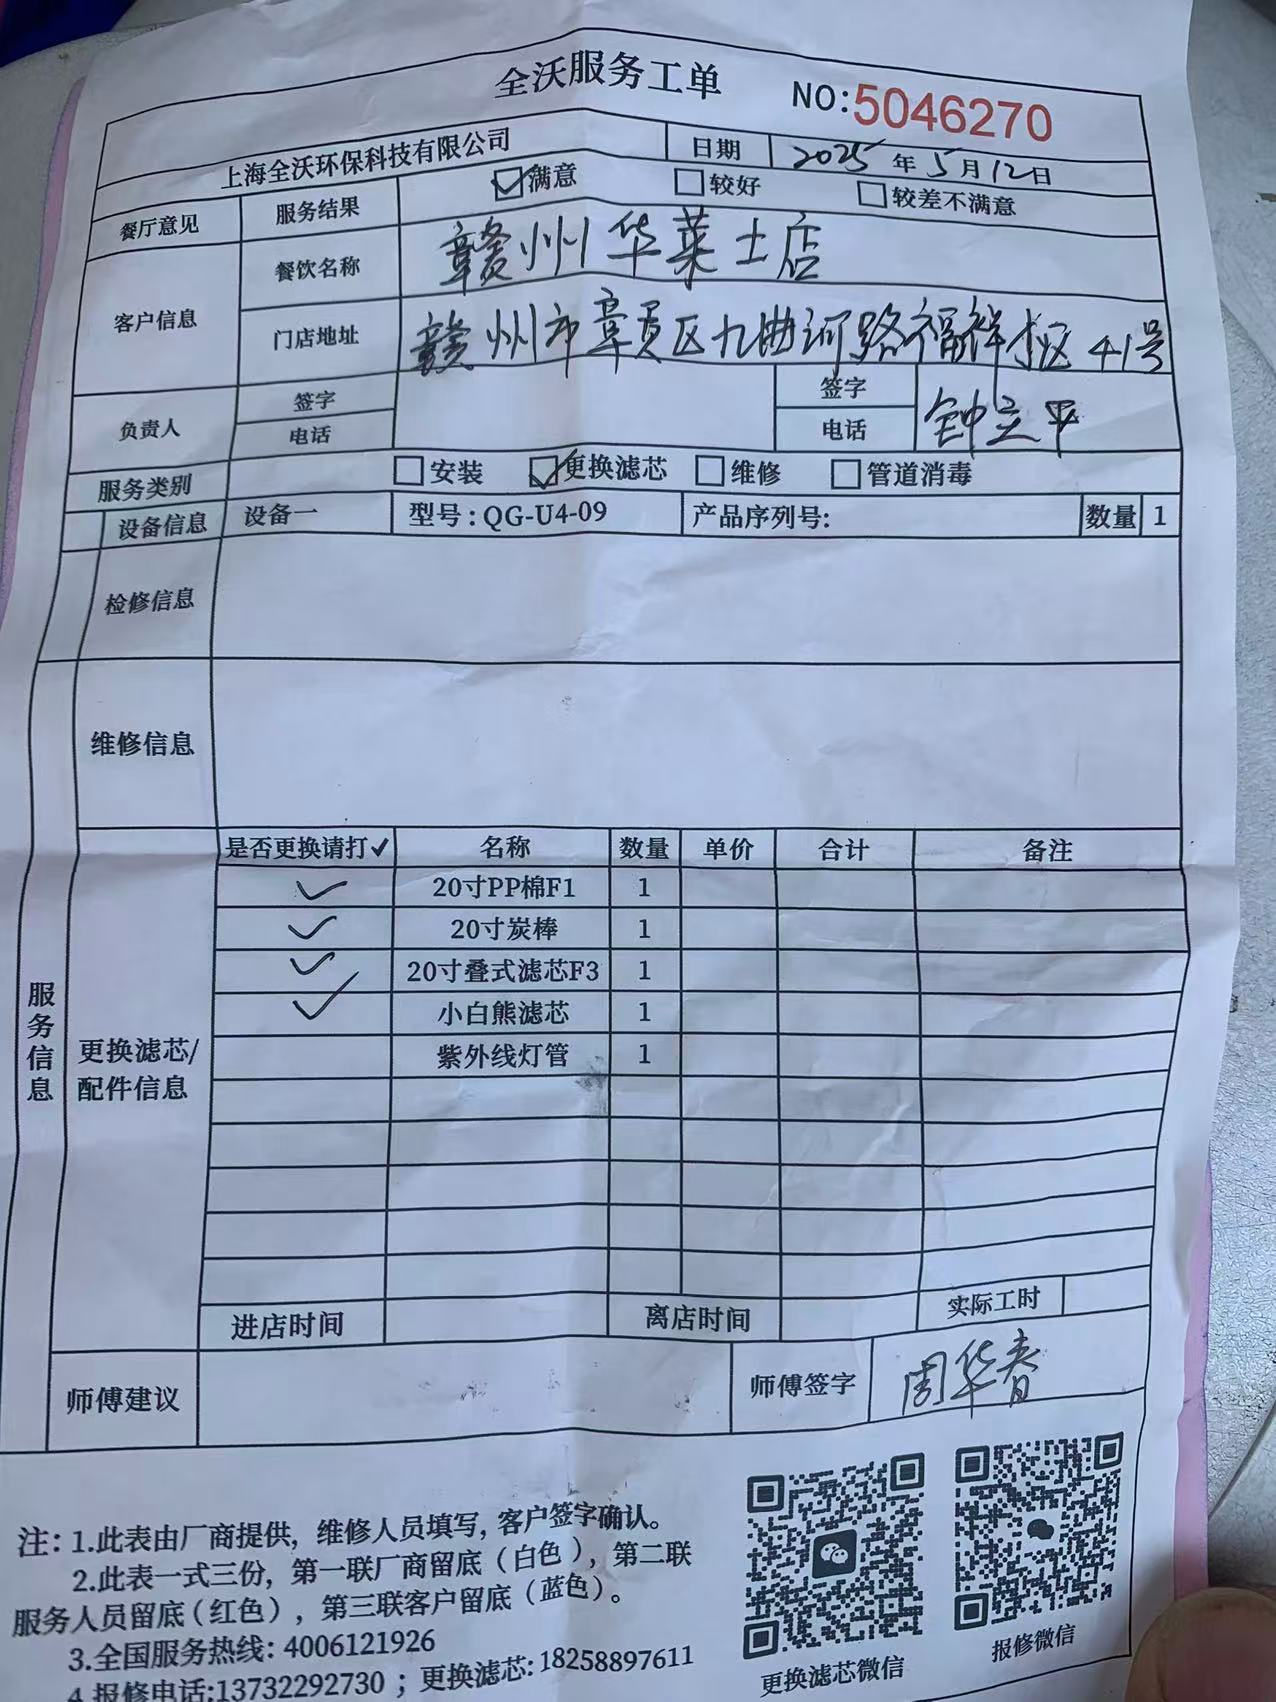 全沃服务工单 NO:5046270
上海全沃环保科技有限公司 日期 2025年5月12日
餐厅意见 服务结果 ☑满意 □较好 □较差不满意
客户信息 餐饮名称 赣州华莱士店
门店地址 赣州市章贡区九曲河路福祥小区41号
负责人 签字 签字 钟立平
电话 电话
服务类别 □安装 ☑更换滤芯 □维修 □管道消毒
设备信息 设备一 型号:QG-U4-09 产品序列号: 数量 1
检修信息
维修信息
服务信息
更换滤芯/
配件信息
是否更换请打✓ 名称 数量 单价 合计 备注
✓ 20寸PP棉F1 1
✓ 20寸炭棒 1
✓ 20寸叠式滤芯F3 1
✓ 小白熊滤芯 1
紫外线灯管 1
进店时间 离店时间 实际工时
师傅建议 师傅签字 周华春
注:1.此表由厂商提供,维修人员填写,客户签字确认。
2.此表一式三份,第一联厂商留底(白色),第二联
服务人员留底(红色),第三联客户留底(蓝色)。
3.全国服务热线:4006121926
4.报修电话:13732292730;更换滤芯:18258897611
更换滤芯微信 报修微信